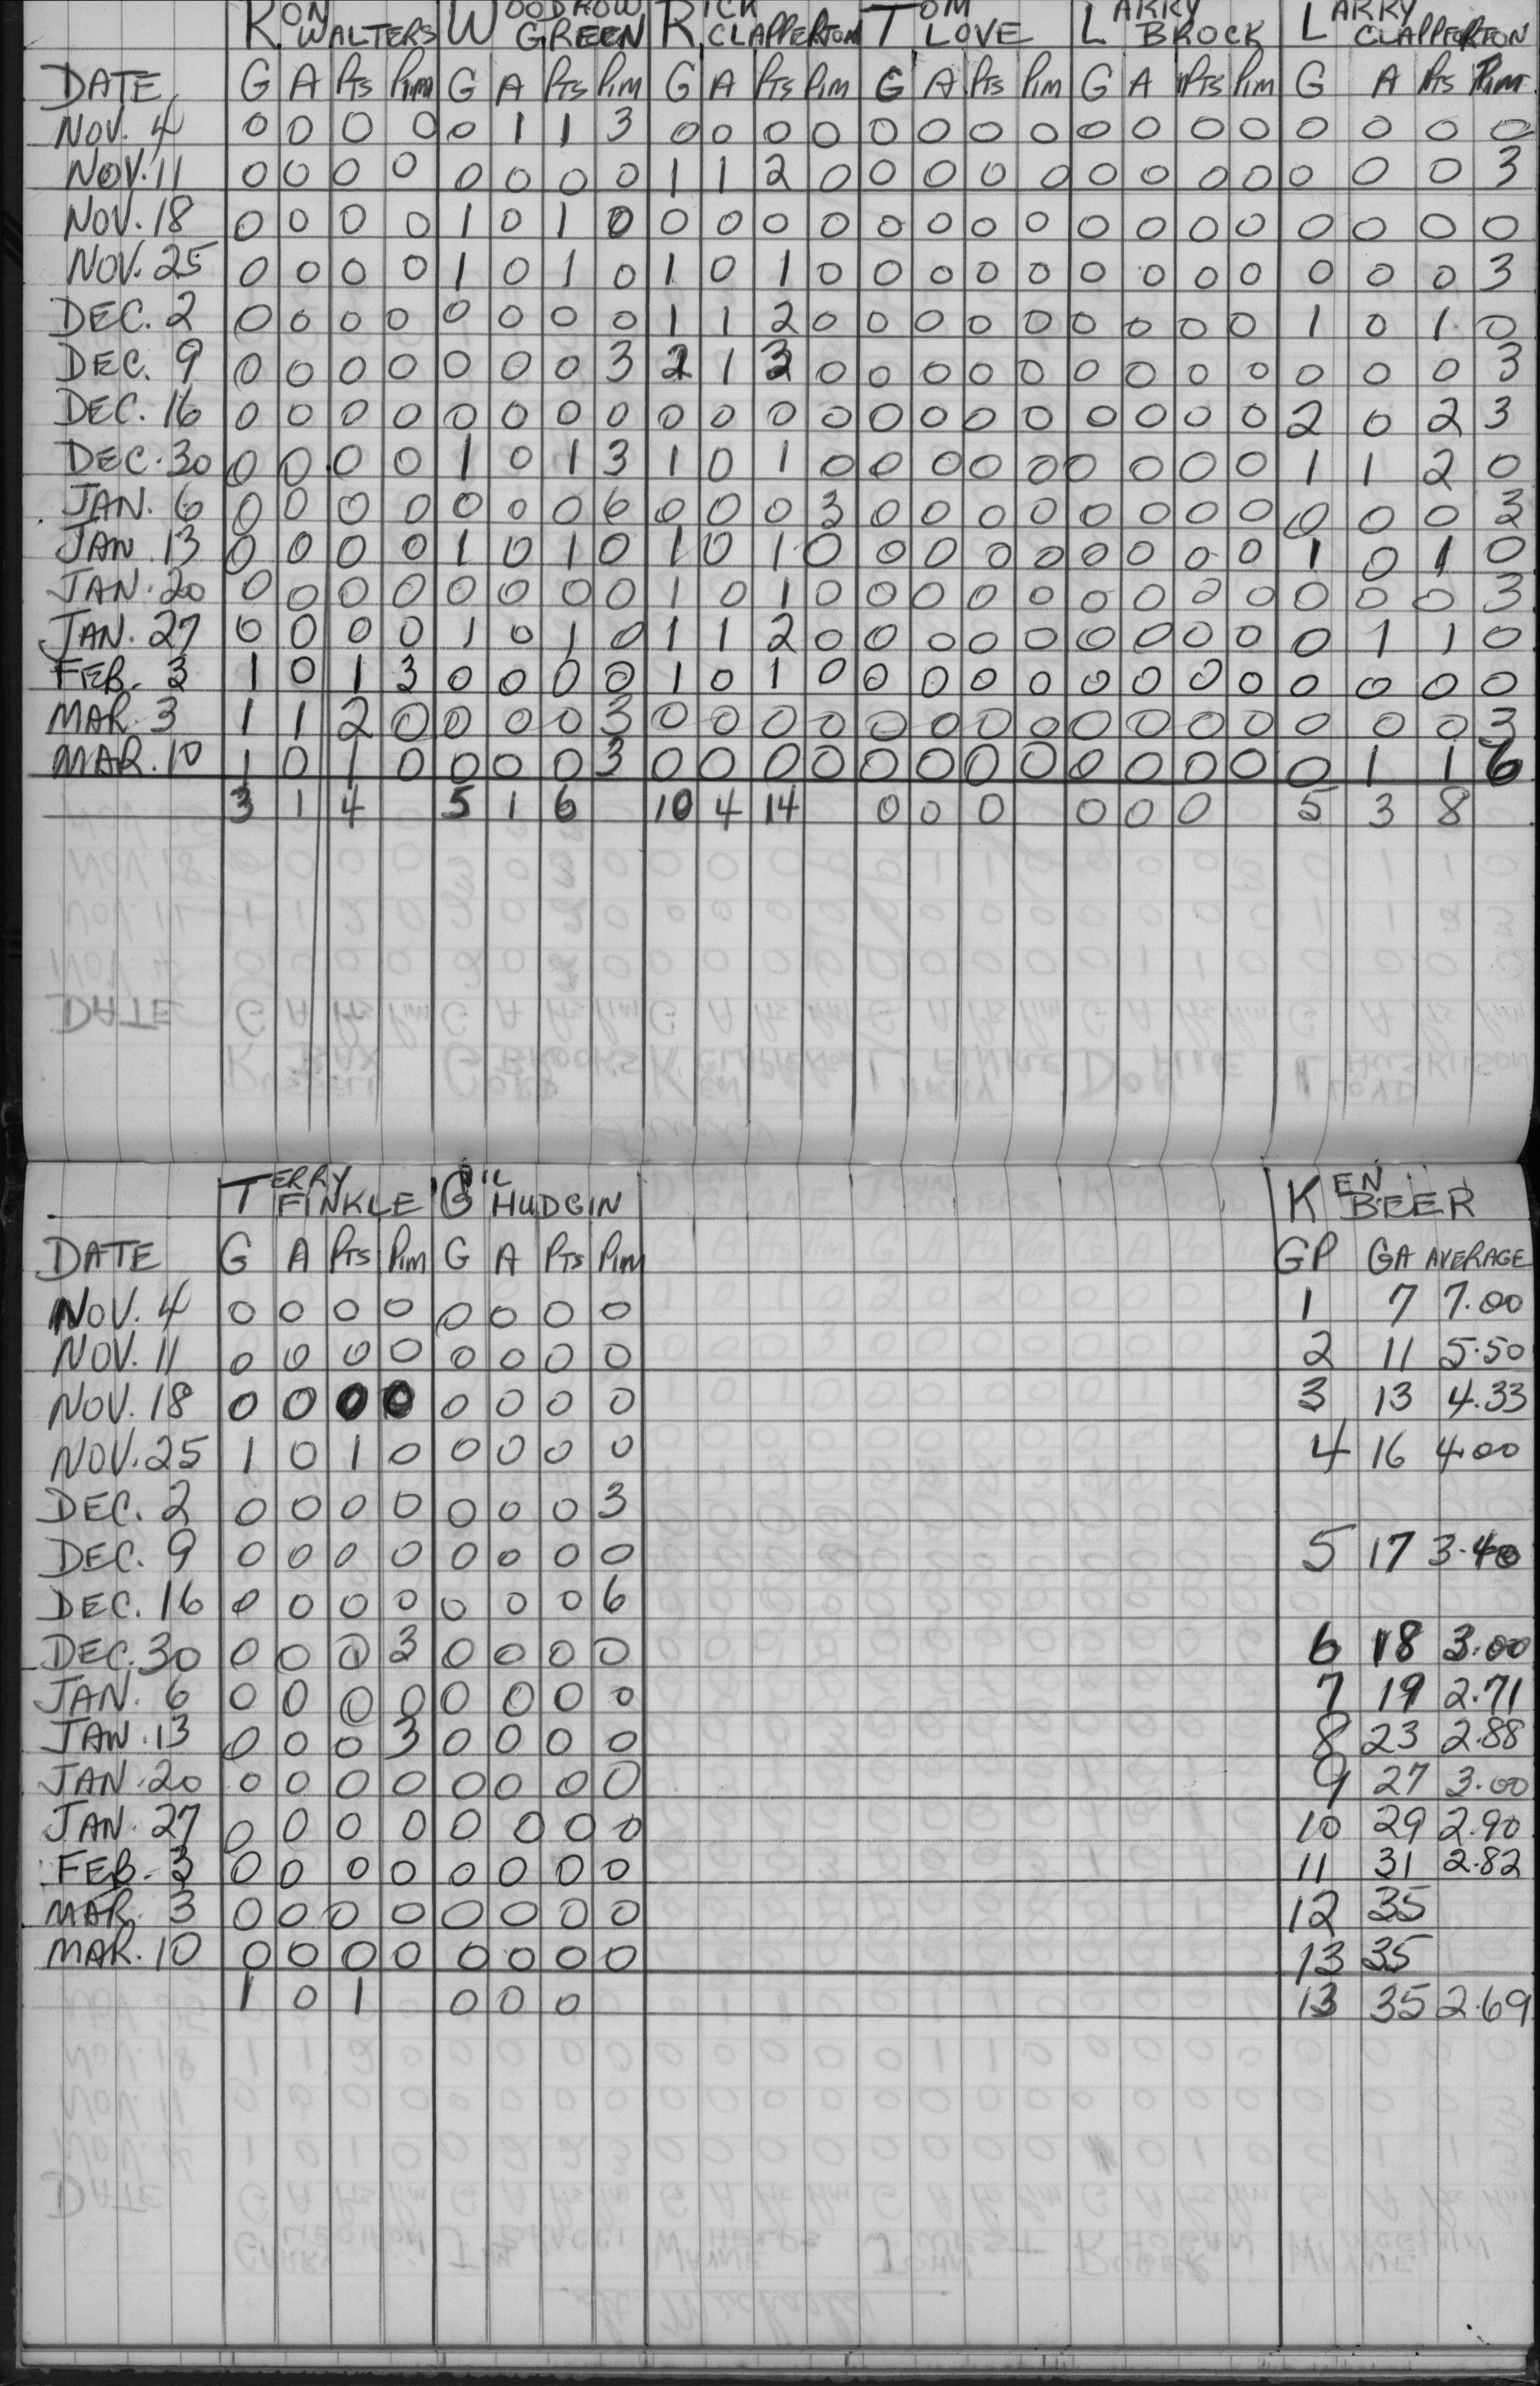 RON WALTERS WOODROW GREEN RICK CLAPPERTON TOM LOVE LARRY BROCK LARRY CLAPPERTON
DATE G A Pts Pim G A Pts Pim G A Pts Pim G A Pts Pim G A Pts Pim G A Pts Pim
NOV. 4 0 0 0 0 0 1 1 3 0 0 0 0 0 0 0 0 0 0 0 0 0 0 0 0
NOV. 11 0 0 0 0 0 0 0 0 1 1 2 0 0 0 0 0 0 0 0 0 0 0 0 3
NOV. 18 0 0 0 0 1 0 1 0 0 0 0 0 0 0 0 0 0 0 0 0 0 0 0 0
NOV. 25 0 0 0 0 1 0 1 0 1 0 1 0 0 0 0 0 0 0 0 0 0 0 0 3
DEC. 2 0 0 0 0 0 0 0 0 1 1 2 0 0 0 0 0 0 0 0 0 1 0 1 0
DEC. 9 0 0 0 0 0 0 0 3 2 1 3 0 0 0 0 0 0 0 0 0 0 0 0 3
DEC. 16 0 0 0 0 0 0 0 0 0 0 0 0 0 0 0 0 0 0 0 0 2 0 2 3
DEC. 30 0 0 0 0 1 0 1 3 1 0 1 0 0 0 0 0 0 0 0 0 1 1 2 0
JAN. 6 0 0 0 0 0 0 0 6 0 0 0 3 0 0 0 0 0 0 0 0 0 0 0 3
JAN. 13 0 0 0 0 1 0 1 0 1 0 1 0 0 0 0 0 0 0 0 0 1 0 1 0
JAN. 20 0 0 0 0 0 0 0 0 1 0 1 0 0 0 0 0 0 0 0 0 0 0 0 3
JAN. 27 0 0 0 0 1 0 1 0 1 1 2 0 0 0 0 0 0 0 0 0 0 1 1 0
FEB. 3 1 0 1 3 0 0 0 0 1 0 1 0 0 0 0 0 0 0 0 0 0 0 0 0
MAR. 3 1 1 2 0 0 0 0 3 0 0 0 0 0 0 0 0 0 0 0 0 0 0 0 3
MAR. 10 1 0 1 0 0 0 0 3 0 0 0 0 0 0 0 0 0 0 0 0 0 1 1 6
3 1 4 5 1 6 10 4 14 0 0 0 0 0 0 5 3 8
TERRY FINKLE HUDGIN KEN BEER
DATE G A Pts Pim G A Pts Pim GP GA AVERAGE
NOV. 4 0 0 0 0 0 0 0 0 1 7 7.00
NOV. 11 0 0 0 0 0 0 0 0 2 11 5.50
NOV. 18 0 0 0 0 0 0 0 0 3 13 4.33
NOV. 25 1 0 1 0 0 0 0 0 4 16 4.00
DEC. 2 0 0 0 0 0 0 0 3
DEC. 9 0 0 0 0 0 0 0 0 5 17 3.40
DEC. 16 0 0 0 0 0 0 0 6
DEC. 30 0 0 0 3 0 0 0 0 6 18 3.00
JAN. 6 0 0 0 0 0 0 0 0 7 19 2.71
JAN. 13 0 0 0 3 0 0 0 0 8 23 2.88
JAN. 20 0 0 0 0 0 0 0 0 9 27 3.00
JAN. 27 0 0 0 0 0 0 0 0 10 29 2.90
FEB. 3 0 0 0 0 0 0 0 0 11 31 2.82
MAR. 3 0 0 0 0 0 0 0 0 12 35
MAR. 10 0 0 0 0 0 0 0 0 13 35
1 0 1 0 0 0 13 35 2.69